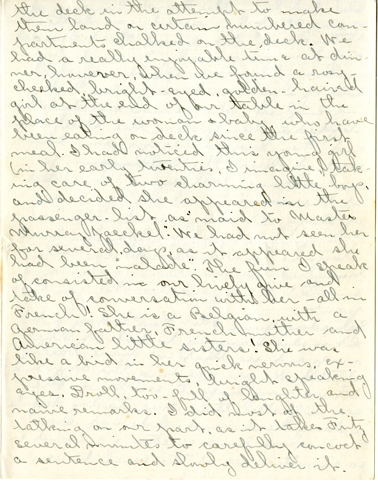 the deck in the attempt to make
them land on certain numbered com-
partments chalked on the deck. We
had a really enjoyable time at din-
ner, however, when we found a rosy-
cheeked, bright-eyed, golden-haired
girl at the end of our table in the
place of the woman & baby who have
been eating on deck since the first
meal. I had noticed this young girl
(in her early twenties, I imagine) tak-
ing care of two charming little boys,
and decided she appeared in the
passenger-list as "maid to Master
Murray Jaeckel". We had not seen her
for several days, as it appeared she
had been "malade". The fun I speak
of consisted in our lively give and
take of conversation with her - all in
French! She is a Belgian, with a
German father, French mother and
American little sisters! She was
like a bird in her quick nervous, ex-
pressive movements, bright speaking
eyes. Droll, too - full of laughter, and
naive remarks. I did most of the
talking on our part, as it takes Fritz
several minutes to carefully concoct
a sentence and slowly deliver it.